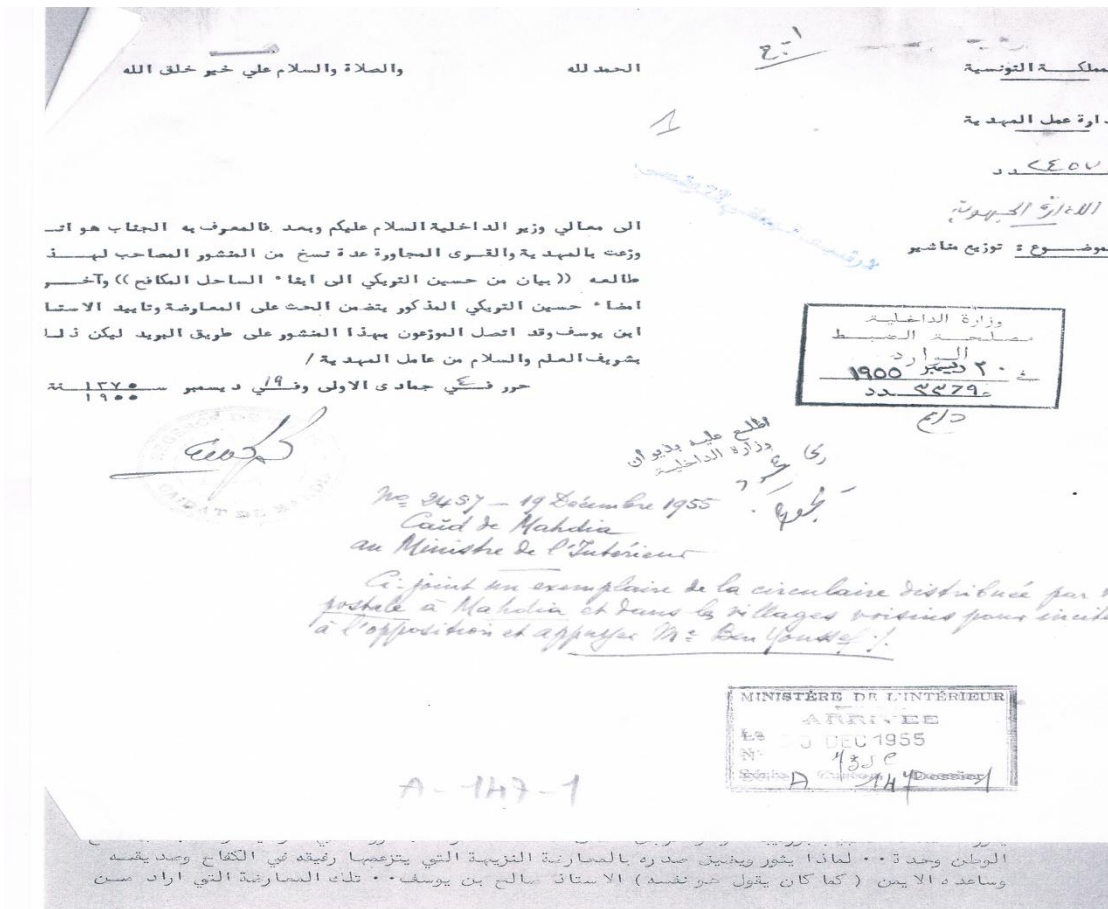 الحمد لله والصلاة والسلام علي خير خلق الله
المملكة التونسية
ادارة عمل المهدية
٢٤٥٧ عدد
الادارة الجهوية
الموضوع : توزيع مناشير
1
الى معالي وزير الداخلية السلام عليكم وبعد فالمعروف به الجناب هو انـ
وزعت بالمهدية والقرى المجاورة عدة نسخ من المنشور المصاحب لهـذ
طالعه ((بيان من حسين التريكي الى ابناء الساحل المكافح)) وآخـر
امضاء حسين التريكي المذكور يتضمن الحث على المعارضة وتاييد الاستـا
ابن يوسف وقد اتصل الموزعون بهذا المنشور على طريق البريد ليكن ذلـ
بشريف العلم والسلام من عامل المهدية /
حرر فـي ٤ جمادى الاولى وفـي 19 ديسمبر سـنة ١٣٧٥
١٩٥٥
وزارة الداخليـة
مصلحـة الضبـط
الـوارد
في ٢٠ ديسمبر 1955
عدد
اطلع عليه بديوان
وزارة الداخلية
No 2457 - 19 Décembre 1955
Caïd de Mahdia
au Ministre de l'Intérieur
Ci-joint un exemplaire de la circulaire distribuée par
postale à Mahdia et dans les villages voisins pour incit
à l'opposition et appuyer Me Ben Youssef ./.
MINISTÈRE DE L'INTÉRIEUR
ARRIVEE
Le 20 DEC 1955
N°
A 147 Dossier 1
A-147-1
الوطن وحدة ٠٠ لماذا يثور ويضيق صدره بالمعارضة النزيهة التي يتزعمها رفيقه في الكفاح وصديقـه
وساعده الايمن ( كما كان يقول هو نفسه) الاستاذ صالح بن يوسف ٠٠ تلك المعارضة التي اراد مـن